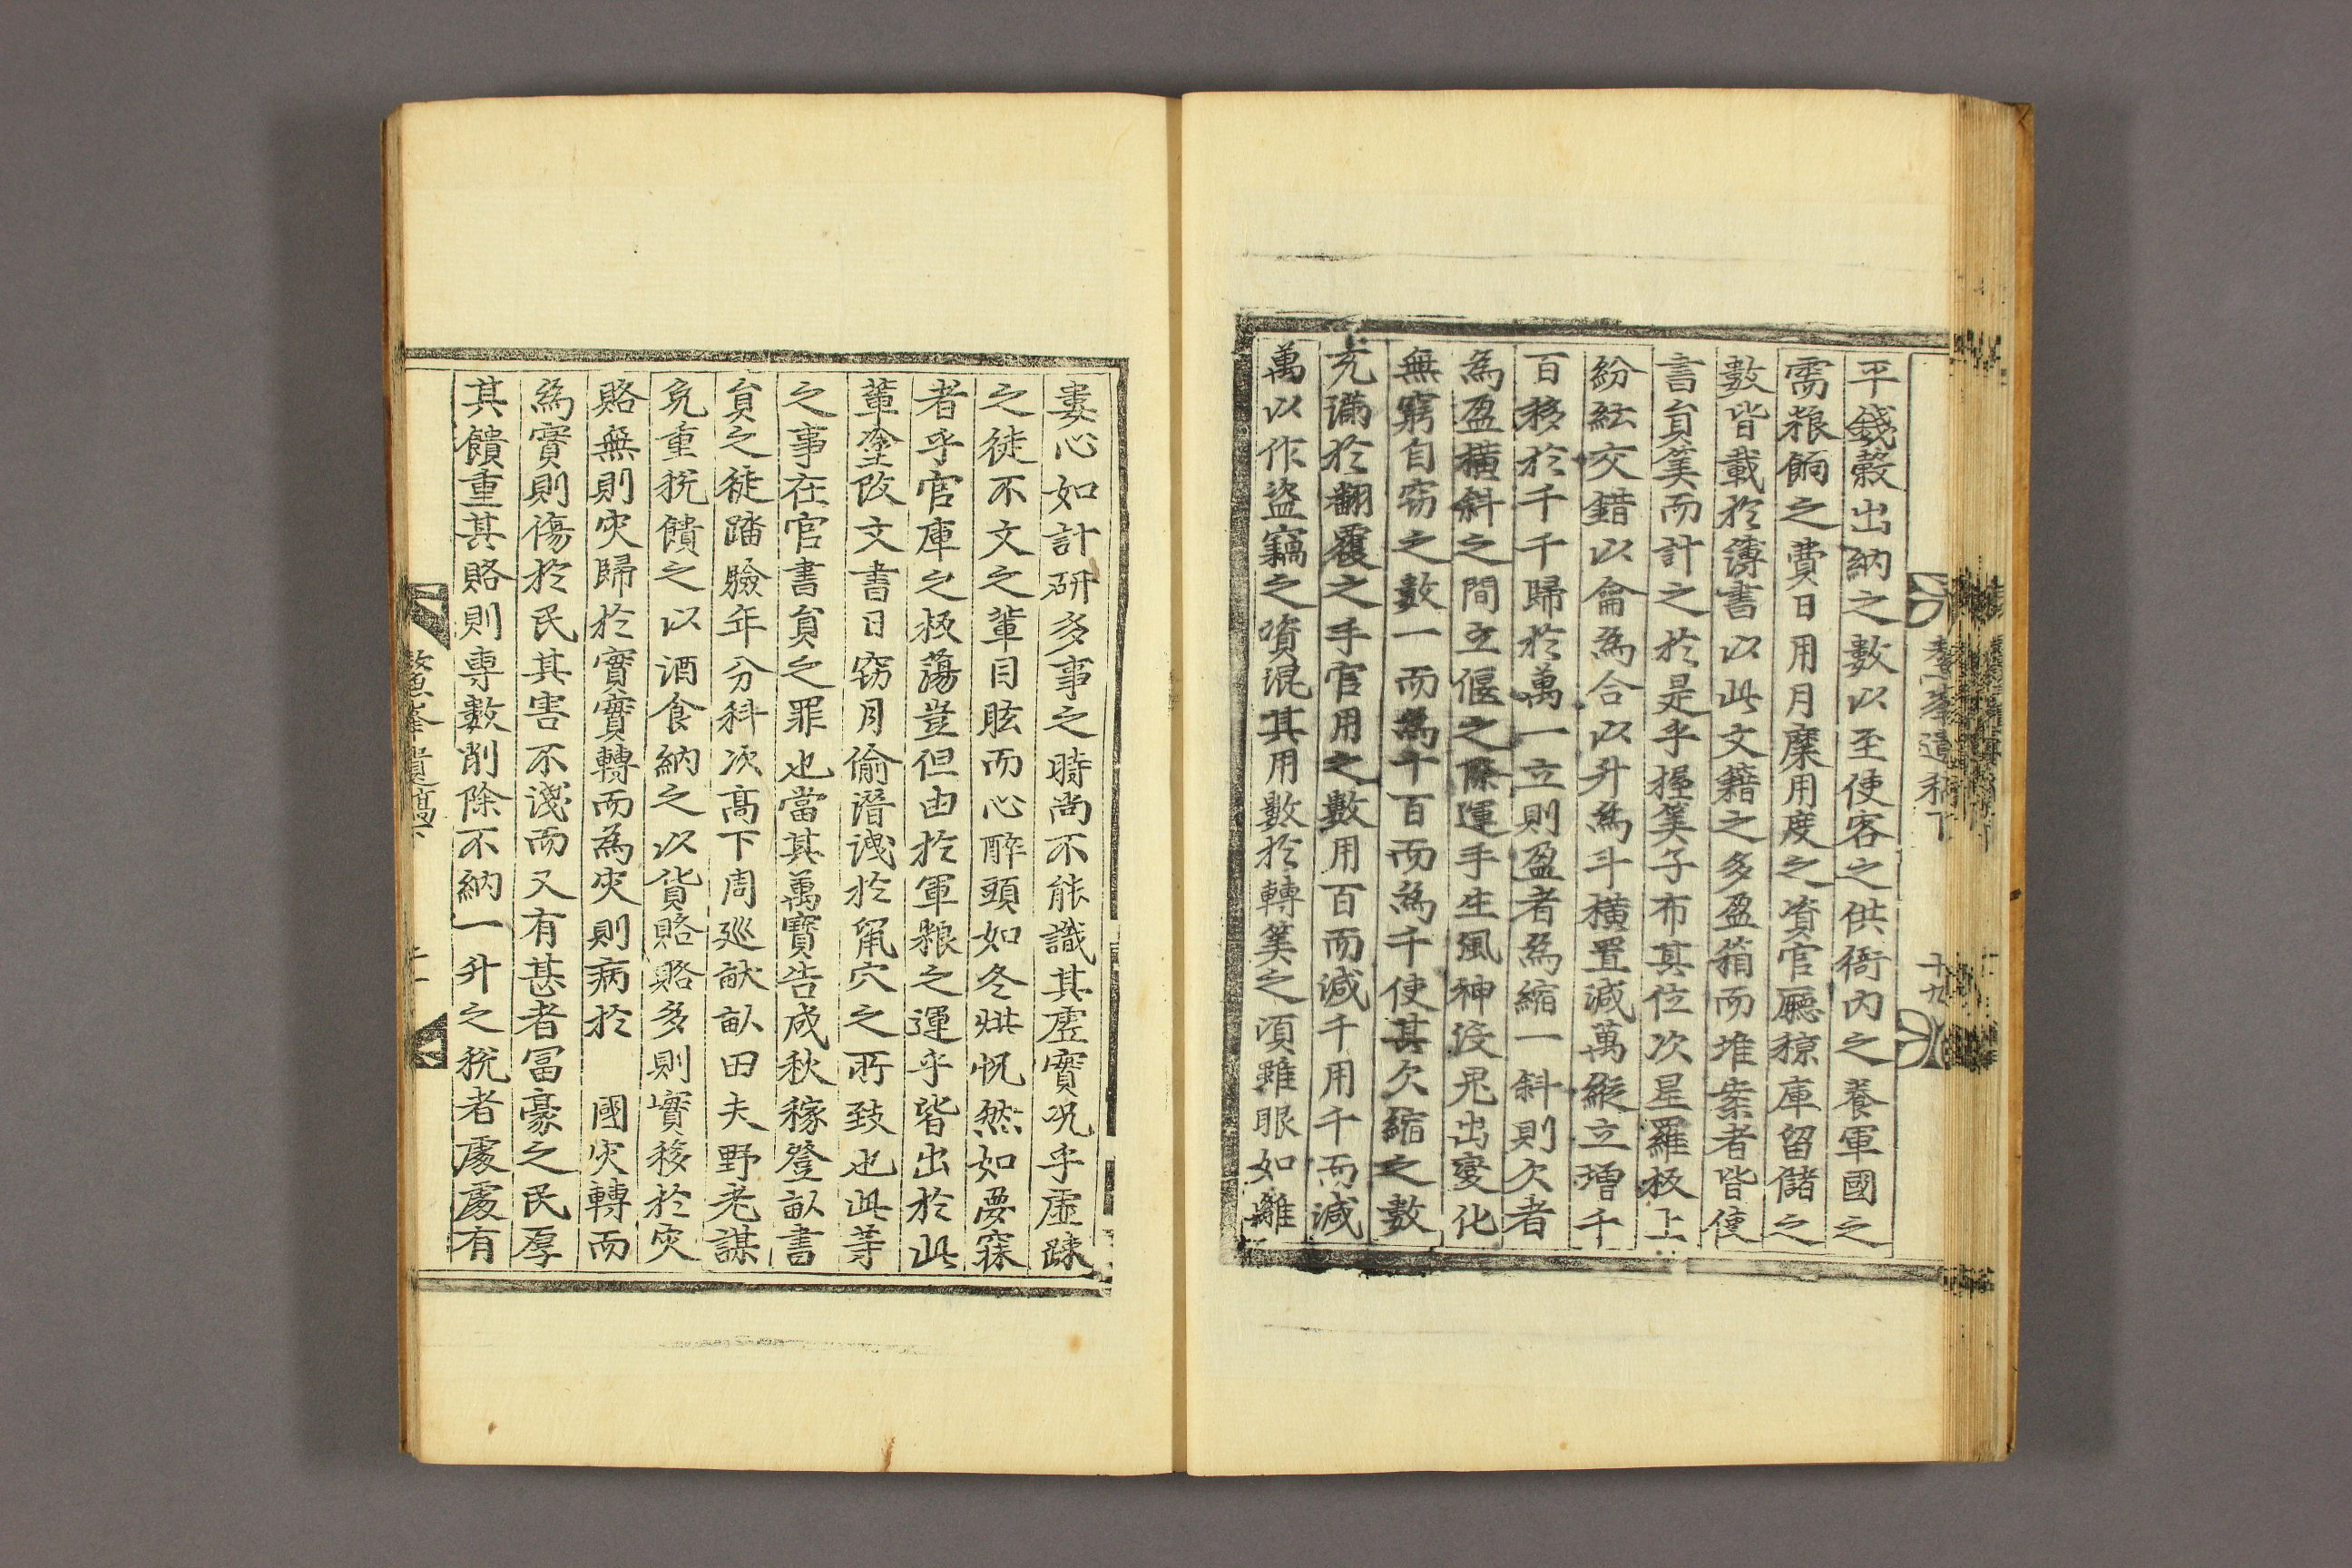 平錢穀出納之數以至使客之供衙內之養軍國之
需粮餉之費日用月糜用度之資官廳椋庫留儲之
數皆載於簿書以此文籍之多盈箱而堆案者皆使
書負筭而計之於是乎握筭子布其位次星羅板上
紛紜交錯以龠爲合以升爲斗橫置減萬縱立增千
百移於千千歸於萬一立則盈者爲縮一斜則欠者
爲盈橫斜之間立偃之際運手生風神沒鬼出變化
無窮自窃之數一而爲千百而爲千使其欠縮之數
充滿於翻覆之手官用之數用百而減千用千而減
萬以作盜竊之資混其用數於轉筭之頃雖眼如離
鰲峯遺稿下
十九
婁心如計研多事之時尚不能識其虛實况乎虛踈
之徒不文之輩目眩而心醉頭如冬烘怳然如夢寐
者乎官庫之板蕩豈但由於軍粮之運乎皆出於此
輩塗改文書日窃月偷潛洩於鼠穴之所致也此等
之事在官書負之罪也當其萬寶告成秋稼登畝書
負之徒踏驗年分科次高下周廵畎畝田夫野老謀
免重稅饋之以酒食納之以貨賂賂多則實移於灾
賂無則灾歸於實實轉而爲灾則病於　國灾轉而
爲實則傷於民其害不淺而又有甚者冨豪之民厚
其饋重其賂則專數削除不納一升之稅者處處有
鰲峯遺稿下